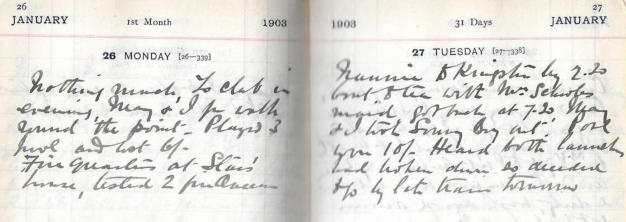 26
JANUARY 1st Month 1903
26 MONDAY [26–339]
Nothing much. To club in
evening, May & I for walk
round "the point". Played 3
pool and lost 6/-
Fire Quarters at
house, tested 2
27
1903 31 Days JANUARY
27 TUESDAY [27–338]
Nannie to Kingston by 2.20
boat & tea with Mrs Scholes
maid, got back at 7.20 May
& I took Sonny Boy out. Pool
won 10/- Heard both launches
had broken down so decided
to go by train tomorrow